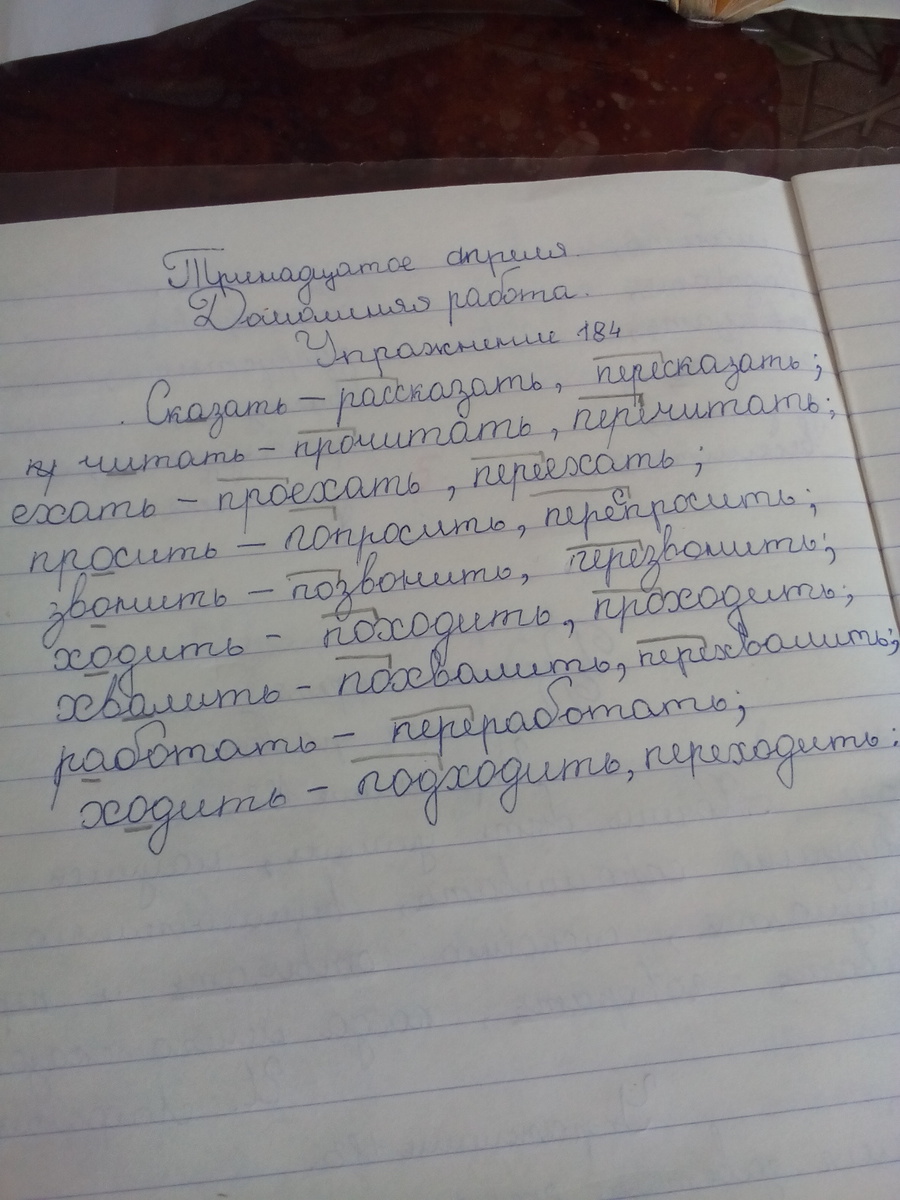 Тринадцатое апреля.
Домашняя работа.
Упражнение 184
Сказать – рассказать, пересказать;
читать – прочитать, перечитать;
ехать – проехать, переехать;
просить – попросить, перепросить;
звонить – позвонить, перезвонить;
ходить – походить, проходить;
хвалить – похвалить, перехвалить;
работать – переработать;
ходить – подходить, переходить.